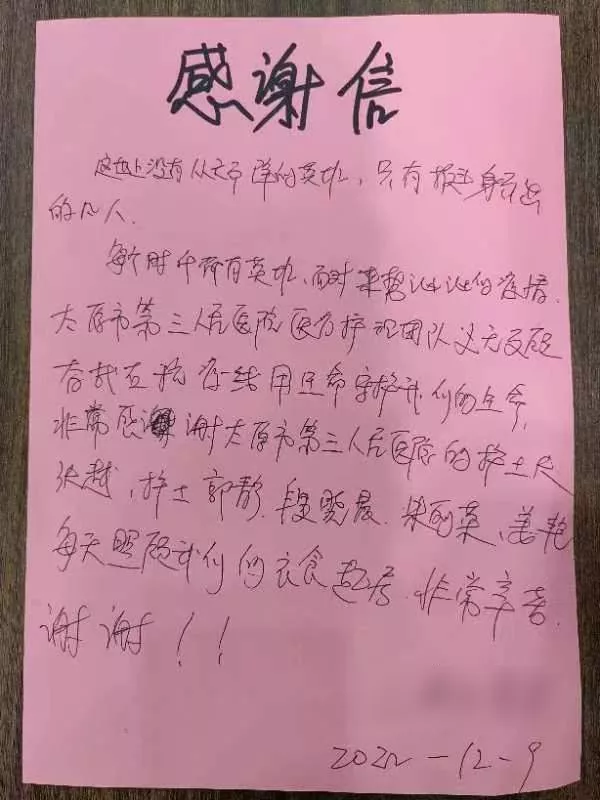 感谢信
这世上没有从天而降的英雄，只有挺身而出
的凡人.
每个时代都有英雄、面对来势汹汹的疫情.
太原市第三人民医院医疗护理团队义无反顾
奋战在抗疫一线用生命守护我们的生命,
非常感谢太原市第三人民医院的护士长
张越，护士郭静.段晓晨.梁丽英、姜艳
每天照顾我们的衣食起居.非常辛苦.
谢谢！！
2022-12-9